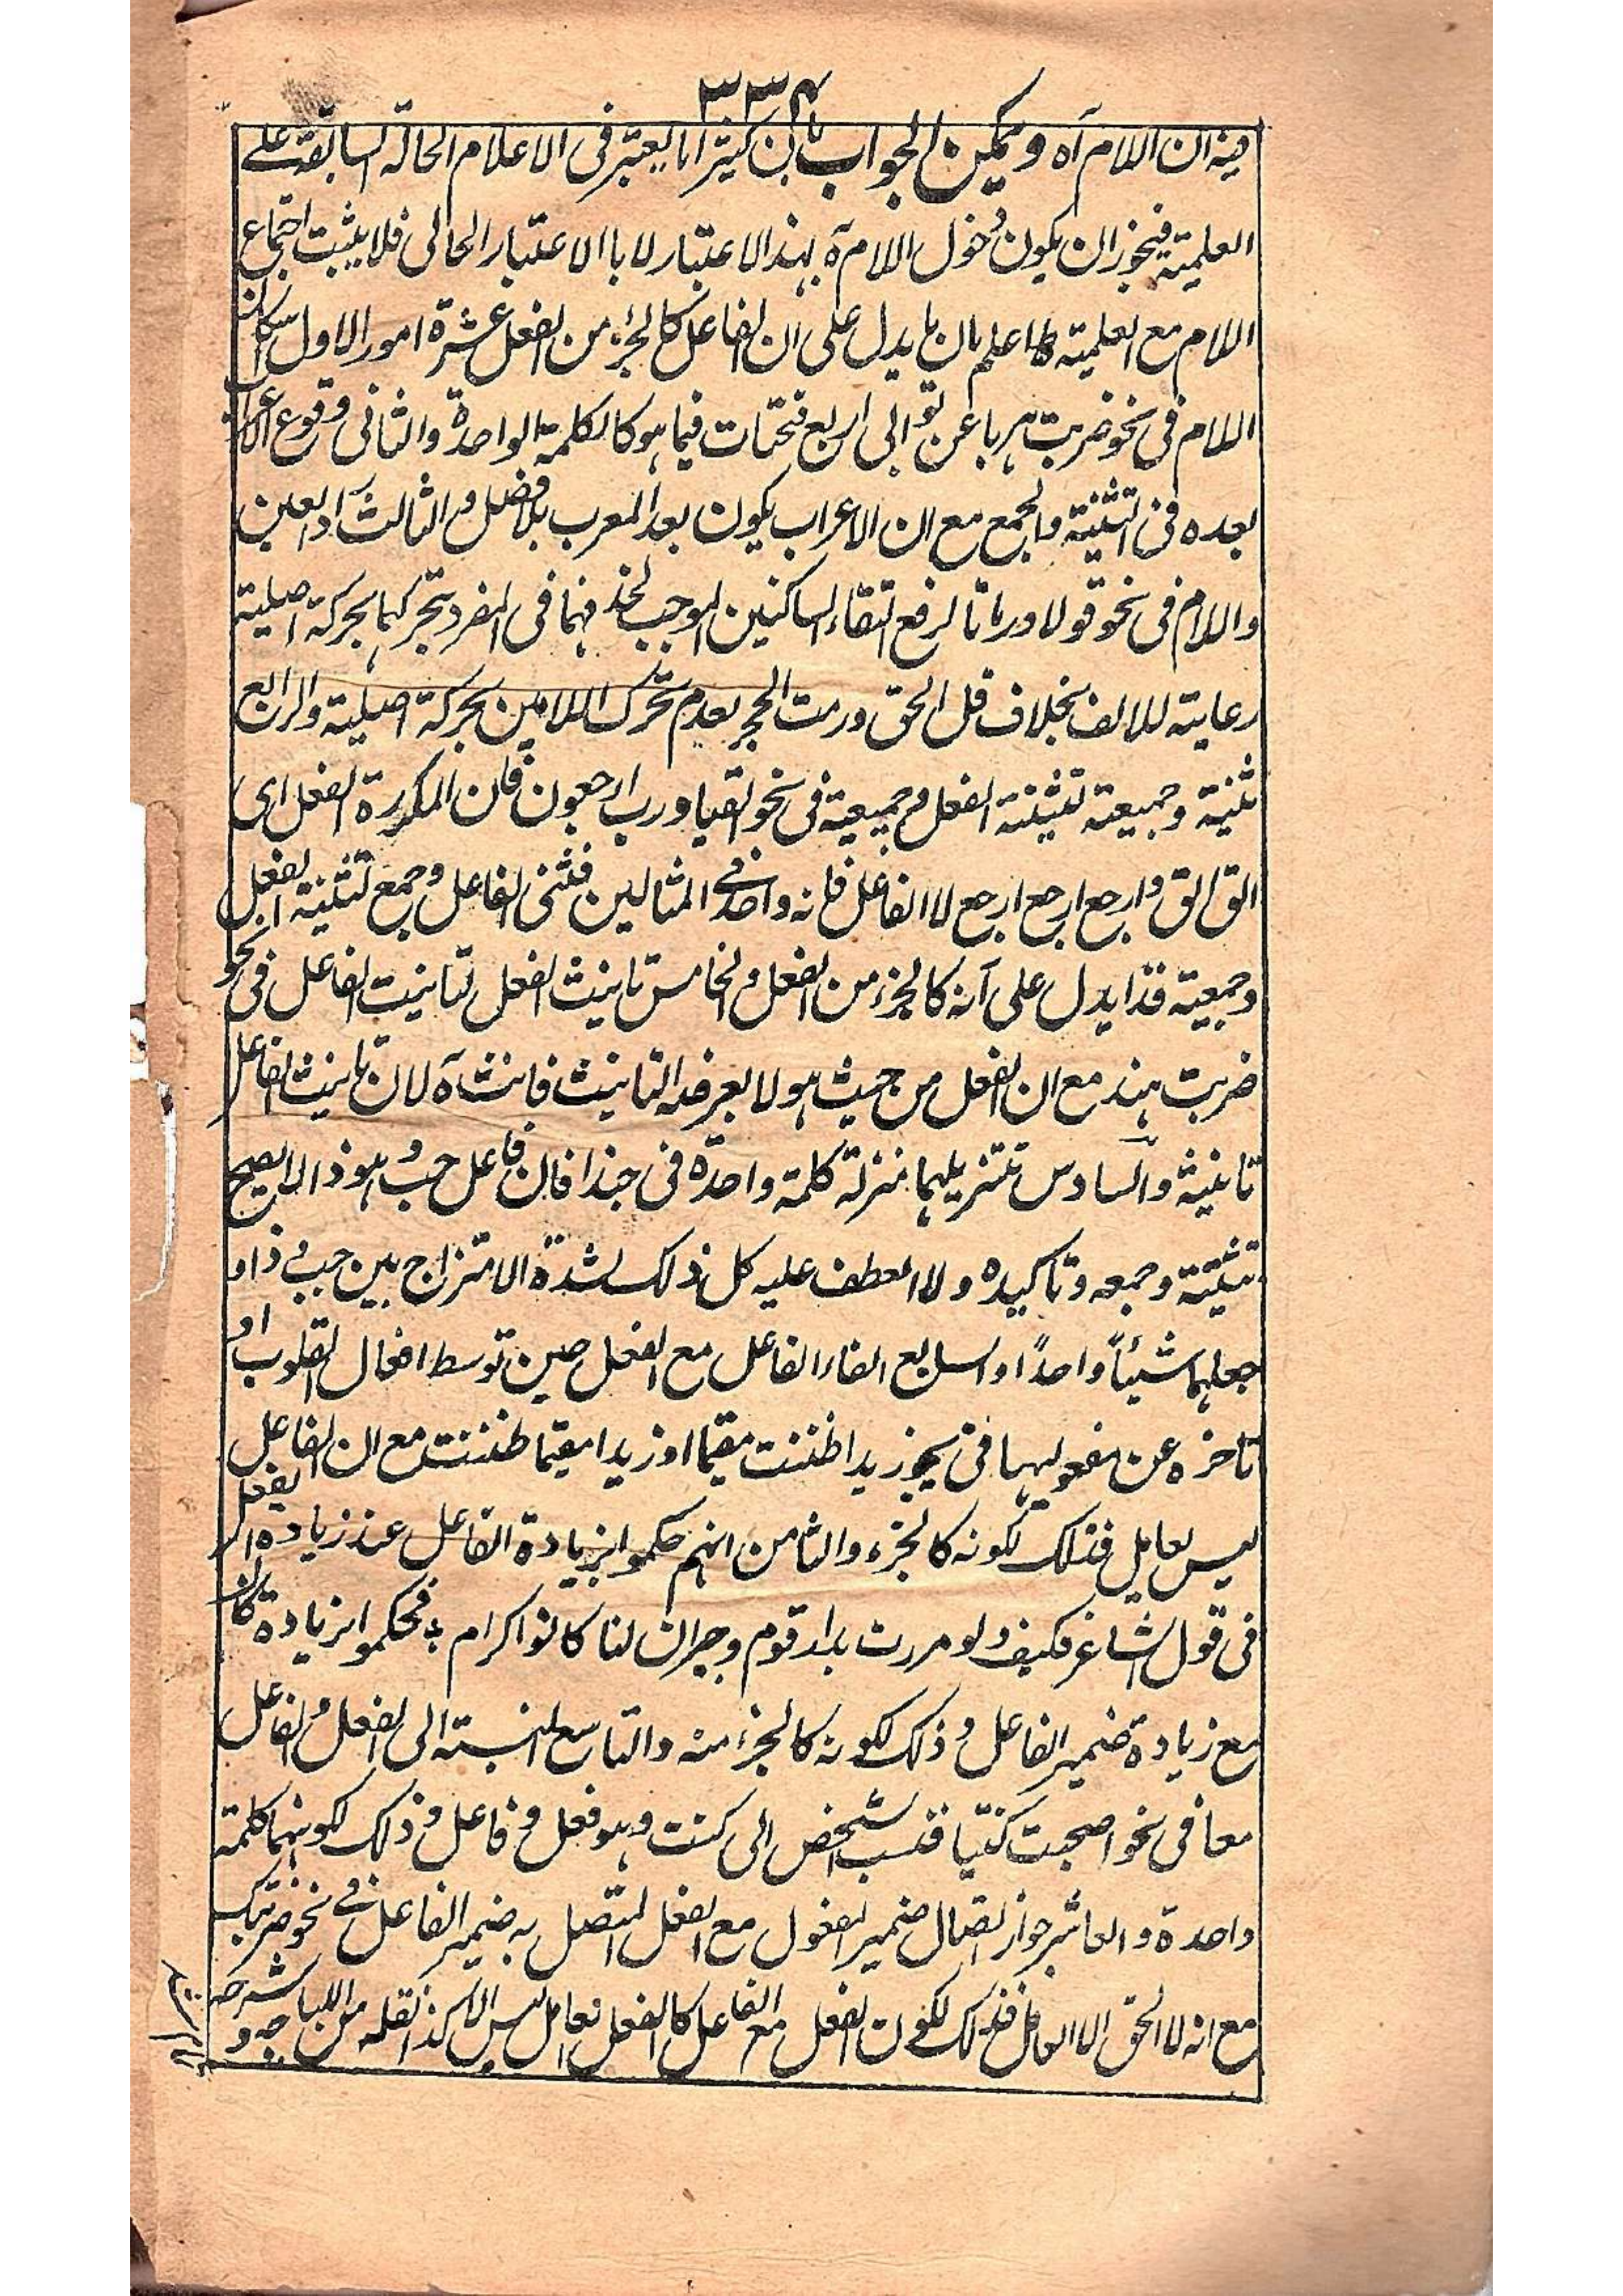 ٣٣٤
فيه ان اللام آه ويمكن الجواب بان كثيرا ما يعتبر فى الاعلام الحالة السابقة على
العلمية فيجوز ان يكون دخول اللام آه بهذا الاعتبار لا باالاعتبار الحالى فلا يثبت اجتماع
اللام مع العلمية اعلم بان ما يدل على ان الفاعل كالجزء من الفعل عشرة امور الاول اسكان
اللام فى نحو ضربت هربا عن توالى اربع فتحات فيما هو كالكلمة الواحدة والثانى وقوع الاعراب
بعده فى التثنية والجمع مع ان الاعراب يكون بعد المعرب بلا فصل والثالث رد العين
واللام فى نحو قولا ورماتا لرفع التقاء الساكنين الموجب لحذفهما فى المفرد بتحركهما بحركة اصلية
رعاية للالف بخلاف قل الحق ورمت الحجر بعدم تحرك اللامين بحركة اصلية والرابع
تثنية وجمعية تثينة الفعل وجمعية فى نحو القيا ورب ارجعون فان المكررة الفعل اى
الق الق وارجع ارجع ارجع لا الفاعل فانه واحد فى المثالين فثنى الفاعل وجمع لتثنية الفعل
وجمعية فذا يدل على انه كالجزء من الفعل والخامس تانيث الفعل لتانيث الفاعل فى نحو
ضربت هند مع ان الفعل من حيث هو لا يعرضه التانيث فانث آه لان تانيث الفاعل
تانيثه والسادس تنزيلهما منزلة كلمة واحدة فى حبذا فان فاعل حب وهو ذا لا يصح
تثنيته وجمعه وتاكيده ولا العطف عليه كل ذلك لشدة الامتزاج بين حب وذا و
جعلهما شيئاً واحداً والسابع الغاء الفاعل مع الفعل حين توسط افعال القلوب او
تاخره عن مفعوليها فى يجوز زيدا ظننت مقيما او زيدا مقيما ظننت مع ان الفاعل
ليس بعامل فذلك لكونه كالجزء والثامن انهم حكموا بزيادة الفاعل عند زيادة الفعل
فى قول الشاعر فكيف ولو مررت بدار قوم وجيران لنا كانوا كرام فحكموا بزيادة كان
مع زيادة ضمير الفاعل وذلك لكونه كالجزء منه والتاسع النسبة الى الفعل والفاعل
معا فى نحو اصبحت كنتيا فنسب الشخص الى كنت وهو فعل وفاعل وذلك لكونهما كلمة
واحدة والعاشر جواز اتصال ضمير المفعول مع الفعل المتصل به ضمير الفاعل فى نحو ضربتك
مع انه لا الحق الا العامل فذلك لكون الفعل مع الفاعل كالفعل العامل ليس الا كذا نقله من اللباب وشرحه